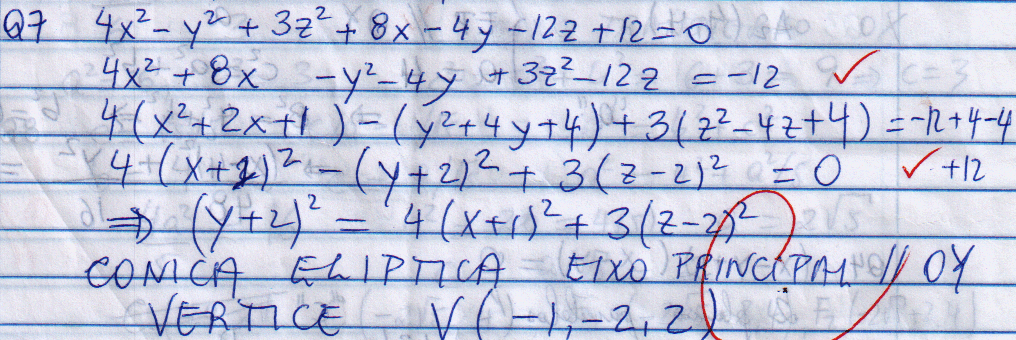 Q7 4x² - y² + 3z² + 8x - 4y - 12z + 12 = 0
4x² + 8x - y² - 4y + 3z² - 12z = -12 ✓
4(x² + 2x + 1) - (y² + 4y + 4) + 3(z² - 4z + 4) = -12 + 4 - 4
4(x + 1)² - (y + 2)² + 3(z - 2)² = 0 ✓ + 12
⇒ (y + 2)² = 4(x + 1)² + 3(z - 2)²
CONICA ELIPTICA EIXO PRINCIPAL // OY
VERTICE V(-1, -2, 2)